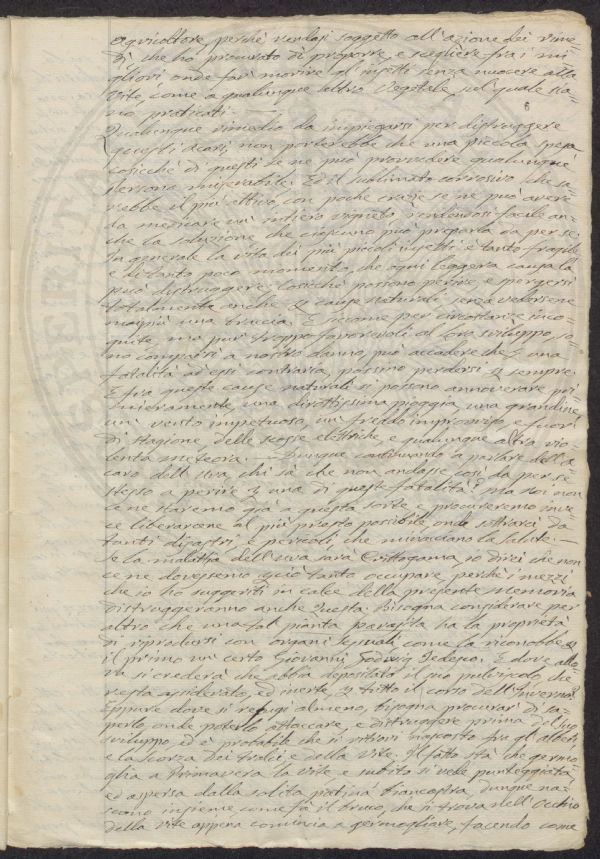 agricoltore, perchè rendasi soggetto all'azione dei rime=
dj che ho procurato di proporre, e scegliere fra i mi=
gliori onde far morire gl'insetti senza nuocere alla
vite, come a qualunque altro vegetale, sul quale sia=
no praticati.
6
Qualunque rimedio da impiegarsi per distruggere
questi Acari, non porterebbe che una piccola spesa
cosicchè di questi se ne può provvedere qualunque
persona miserabile. Ed il sublimato corrosivo che sa=
rebbe il più attivo con poche crazie se ne può avere
da medicare un intiero vigneto rendendosi facile an=
che la soluzione che ciascuno può prepararla da per se.
In generale la vita dei più piccoli insetti è tanto fragile
e di tanto poco momento, che ogni leggera causa la
può distruggere. Cosicchè possono perire, e spergersi
totalmente anche cause naturali, senza vedersene
neppure una traccia. E siccome per circostanze inco=
gnite, ma pur troppo favorevoli al loro sviluppo, so=
no comparsi a nostro danno, può accadere che una
fatalità ad essi contraria, possino perdersi sempre.
E fra queste cause naturali si possono annoverare pri=
mieramente, una dirottissima pioggia, una grandine,
un vento impetuoso, un freddo improvviso, e fuori
di stagione, delle scosse elettriche, e qualunque altra vio=
lenta meteora. — Dunque continuando a parlare dell'A=
caro dell'uva, chi sà che non andasse così da per se
stesso a perire una di queste fatalità? Ma noi non
ce ne staremo già a questa sorte, e procureremo inve=
ce liberarcene al più presto possibile onde sottrarci da
tanti disastri e pericoli che minacciano la salute. —
Se la malattia dell'uva sarà Crittogama, io direi che non
ce ne dovessemo tanto occupare, perchè i mezzi
che io ho suggeriti in calce della presente Memoria
distruggeranno anche questa. Bisogna considerare per
altro che una tal pianta parasita ha la proprietà
di riprodursi con organi sessuali come la riconobbe
il primo un certo Giovanni Hedwig Tedesco. E dove allo=
ra si crederà che abbia depositato il suo pulviscolo, che
resta assiderato, ed inerte tutto il corso dell'Inverno?
Eppure dove si refugi almeno, bisogna procurar di sa=
perlo onde poterlo attaccare, e distruggere prima del suo
sviluppo, ed è probabile che si ritrovi nascosto fra gl'alberi
e la scorza dei tralci e della vite. Il fatto stà che germo=
glia a Primavera la vite, e subito si vede punteggiata
ed aspersa dalla solita patina biancastra, dunque na=
scono insieme come fà il bruco, che si trova nell'occhio
della vite appena comincia a germogliare, facendo come